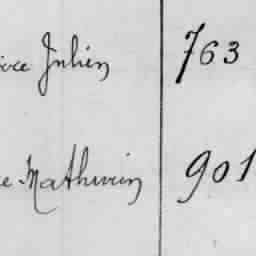 Julien 763
Mathurin 901